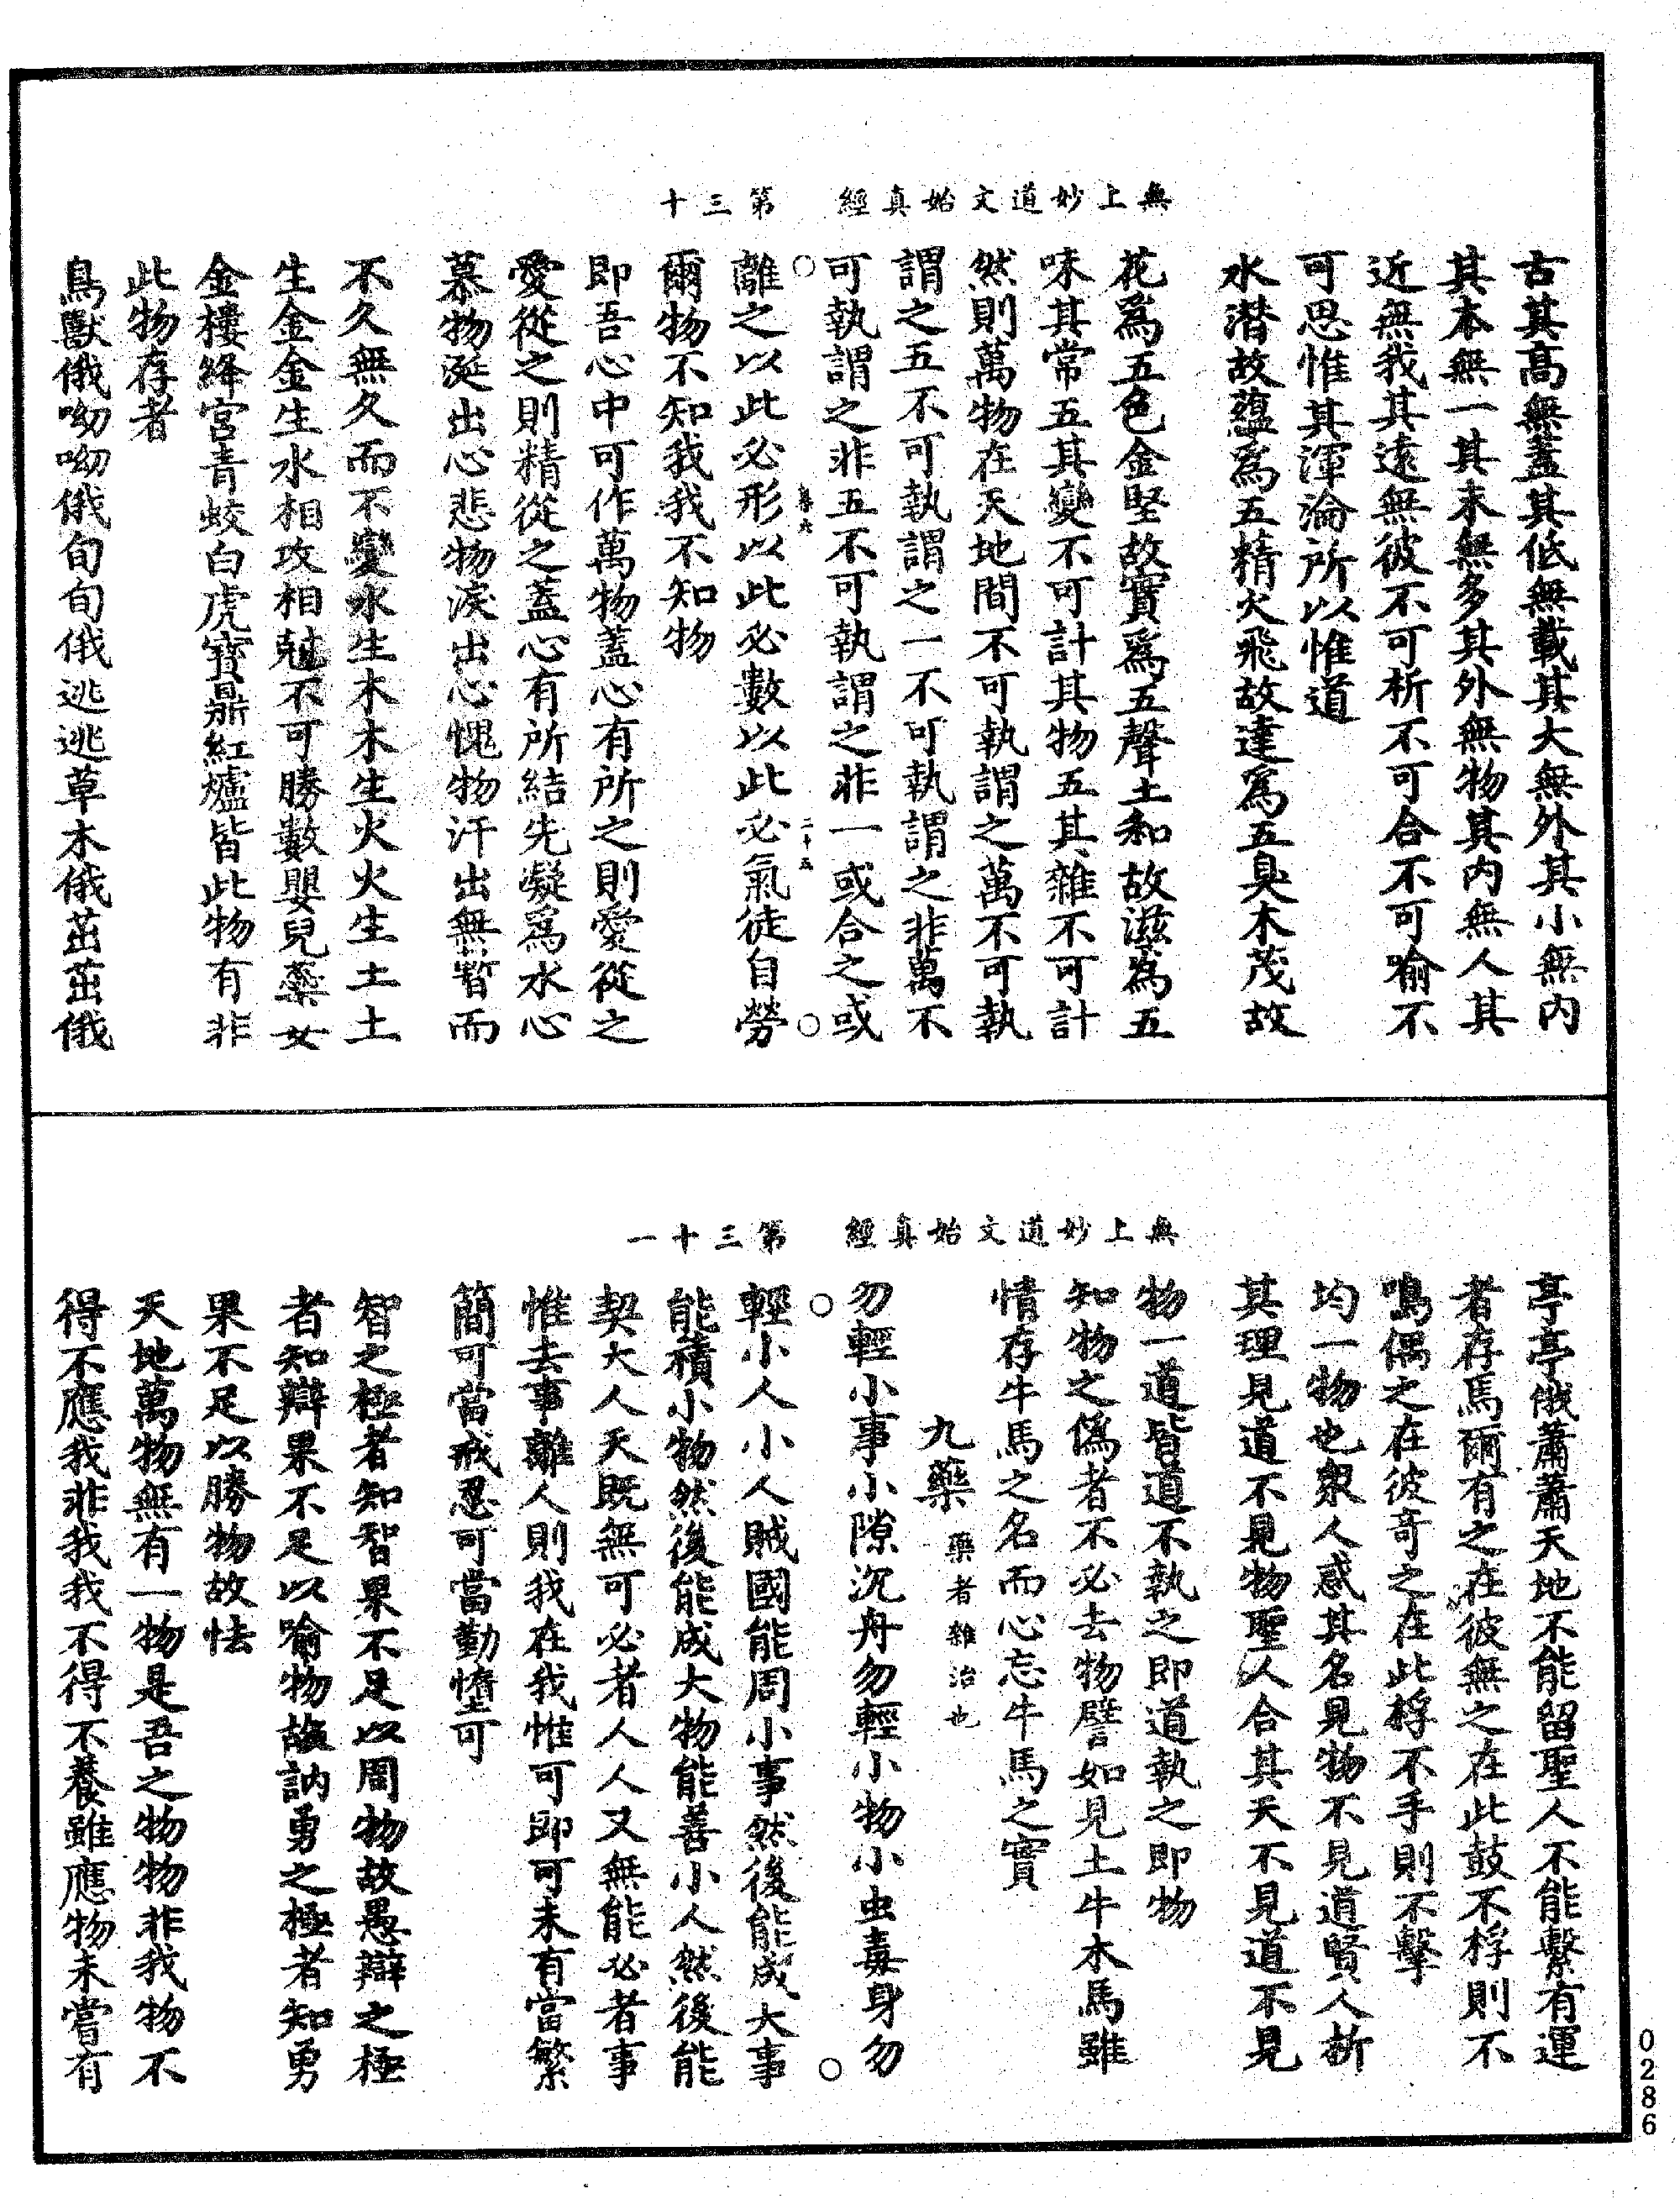 無上妙道文始真經　第三十
古其高無蓋其低無載其大無外其小無内
其本無一其末無多其外無物其内無人其
近無我其遠無彼不可析不可合不可喻不
可思惟其渾淪所以惟道
水潜故蘊爲五精火飛故達爲五臭木茂故
花爲五色金堅故實爲五聲土和故滋爲五
味其常五其變不可計其物五其雜不可計
然則萬物在天地間不可執謂之萬不可執
謂之五不可執謂之一不可執謂之非萬不
可執謂之非五不可執謂之非一或合之或
○　卷六　二十五　○
離之以此必形以此必數以此必氣徒自勞
爾物不知我我不知物
即吾心中可作萬物蓋心有所之則愛從之
愛從之則精從之蓋心有所結先凝爲水心
慕物涎出心悲物淚出心愧物汗出無暫而
不久無久而不變水生木木生火火生土土
生金金生水相攻相剋不可勝數嬰兒蘂女
金樓絳宮青蛟白虎寶鼎紅爐皆此物有非
此物存者
鳥獸俄呦呦俄旬旬俄逃逃草木俄茁茁俄
無上妙道文始真經　第三十一
亭亭俄蕭蕭天地不能留聖人不能繫有運
者存焉爾有之在彼無之在此鼓不桴則不
鳴偶之在彼奇之在此桴不手則不擊
均一物也衆人惑其名見物不見道賢人析
其理見道不見物聖人合其天不見道不見
物一道皆道不執之即道執之即物
知物之僞者不必去物譬如見土牛木馬雖
情存牛馬之名而心忘牛馬之實
九藥　藥者雜治也
勿輕小事小隙沉舟勿輕小物小虫毒身勿
○　○
輕小人小人賊國能周小事然後能成大事
能積小物然後能成大物能善小人然後能
契大人天既無可必者人人又無能必者事
惟去事離人則我在我惟可即可未有當繁
簡可當戒忍可當勤惰可
智之極者知智果不足以周物故愚辯之極
者知辯果不足以喻物故訥勇之極者知勇
果不足以勝物故怯
天地萬物無有一物是吾之物物非我物不
得不應我非我我不得不養雖應物未嘗有
0286